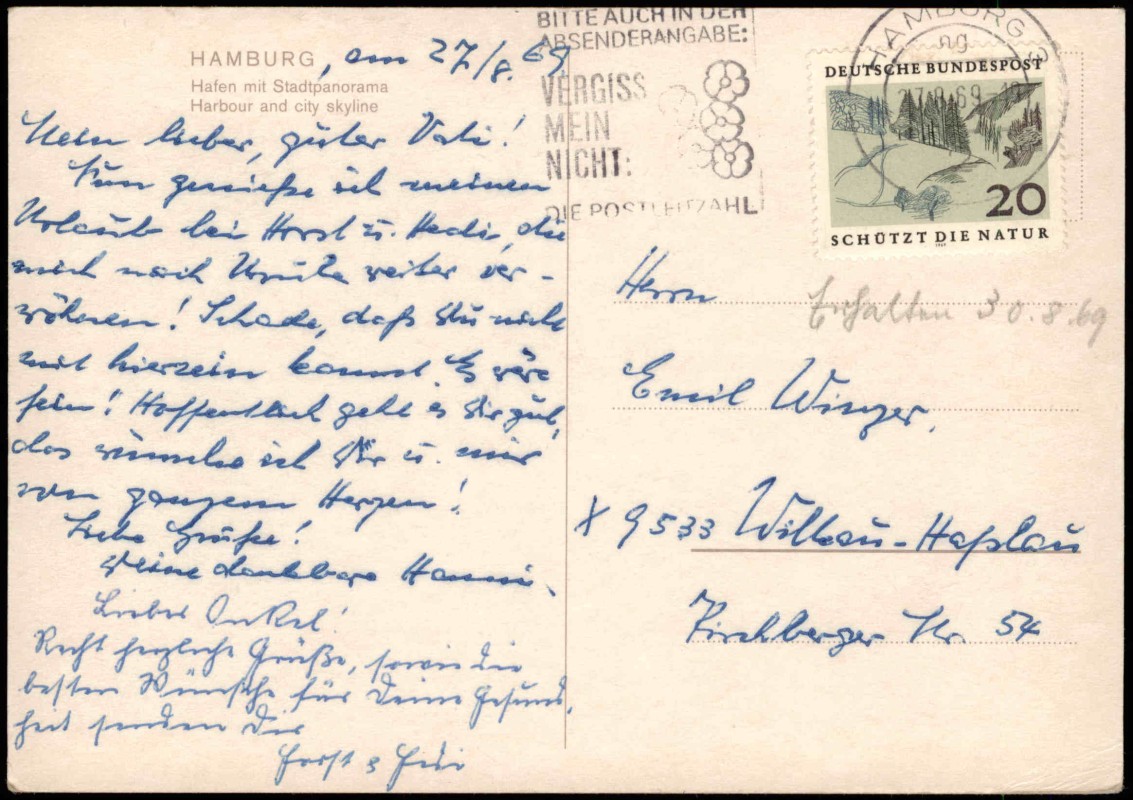 HAMBURG, am 27/8. 69
Hafen mit Stadtpanorama
Harbour and city skyline
Mein lieber, guter Vati!
Nun genieße ich meinen
Urlaub bei Horst u. Hedi, die
mich nach weiter ver-
wöhnen! Schade, daß Du nicht
mit hierzein kannst. Es wäre
fein! Hoffentlich geht es Dir gut,
das wünsche ich Dir u. mir
von ganzem Herzen!
Liebe Grüße!
Deine dankbare Hanni.
Lieber Onkel!
Recht herzliche Grüße, sowie die
besten Wünsche für Deine Gesund-
heit senden Dir
Horst &
BITTE AUCH IN DER
ABSENDERANGABE:
VERGISS
MEIN
NICHT:
DIE POSTLEITZAHL
HAMBURG
27.8.69
DEUTSCHE BUNDESPOST
20
SCHÜTZT DIE NATUR
1969
Herrn
Erhalten 30.8.69
Emil Winger,
X 9533 Wilkau-Haßlau
Kirchberger Str. 54